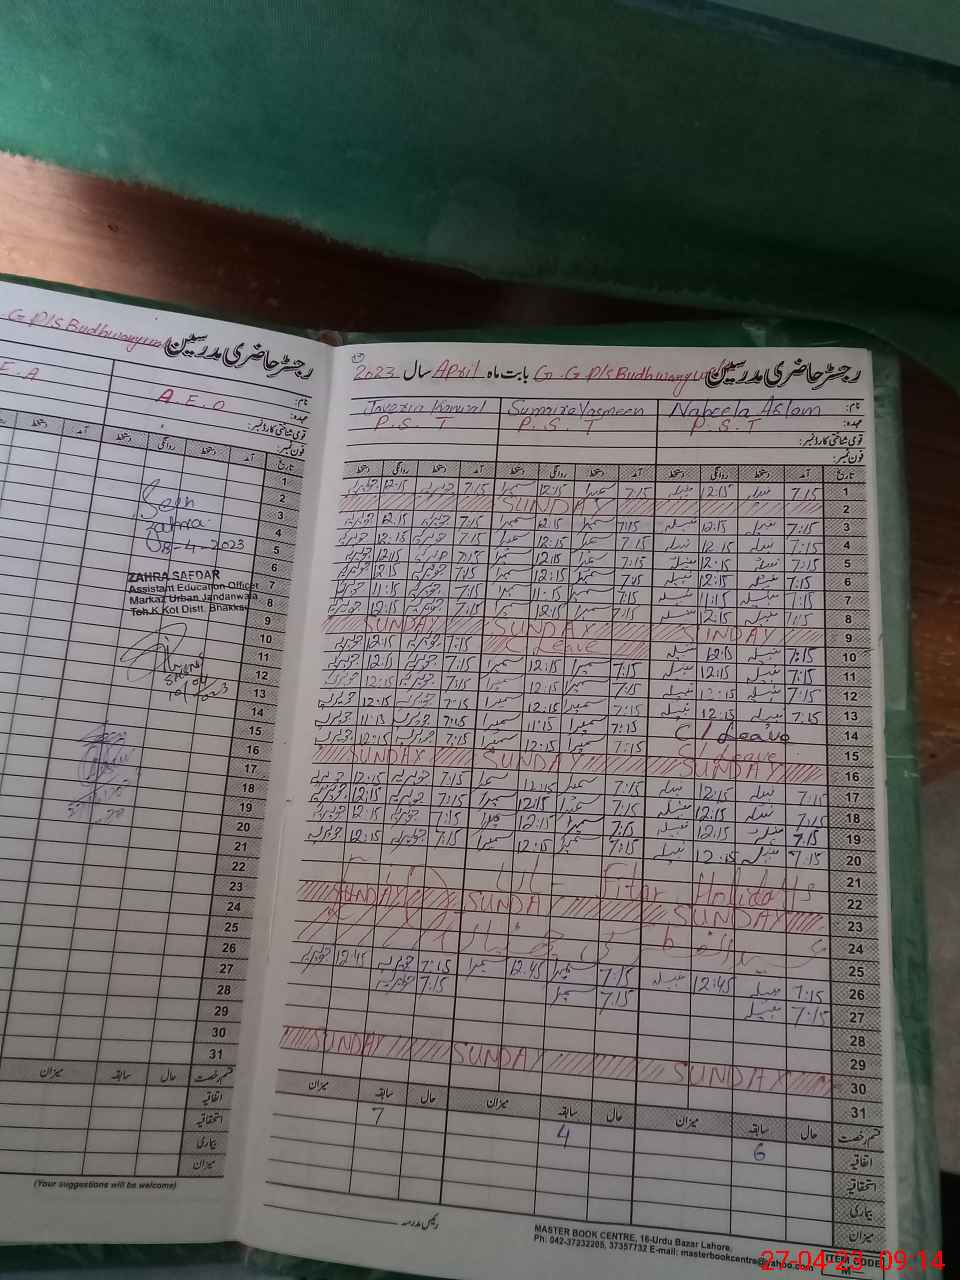 G P/S Budhwanywala رجسٹر حاضری مدرسین
E.A A.E.O
نام:
عہدہ:
قومی شناختی کارڈ نمبر:
فون نمبر:
آمد دستخط روانگی دستخط آمد تاریخ
1
2
3
4
5
6
7
8
9
10
11
12
13
14
15
16
17
18
19
20
21
22
23
24
25
26
27
28
29
30
31
Zahra
8-4-2023
ZAHRA SAEDAR
Assistant Education Officer
Markaz Urban Jandanwala
Teh.K.Kot Distt. Bhakkar
میزان سابقہ حال قسم رخصت
اتفاقیہ
استحقاقیہ
بیماری
میزان
(Your suggestions will be welcome)
رجسٹر حاضری مدرسین G.G P/S Budhwanywala بابت ماہ April سال 2023
نام: Nabeela Aslam Sumaira Yasmeen Javeria Kanwal
عہدہ: P.S.T P.S.T P.S.T
قومی شناختی کارڈ نمبر:
فون نمبر:
تاریخ آمد دستخط روانگی دستخط آمد دستخط روانگی دستخط آمد دستخط روانگی دستخط
1 7:15 نبیلہ 12:15 نبیلہ 7:15 سمیرا 12:15 سمیرا 7:15 جویریہ 12:15 جویریہ
2 SUNDAY
3 7:15 نبیلہ 12:15 نبیلہ 7:15 سمیرا 12:15 سمیرا 7:15 جویریہ 12:15 جویریہ
4 7:15 نبیلہ 12:15 نبیلہ 7:15 سمیرا 12:15 سمیرا 7:15 جویریہ 12:15 جویریہ
5 7:15 نبیلہ 12:15 نبیلہ 7:15 سمیرا 12:15 سمیرا 7:15 جویریہ 12:15 جویریہ
6 7:15 نبیلہ 12:15 نبیلہ 7:15 سمیرا 12:15 سمیرا 7:15 جویریہ 12:15 جویریہ
7 7:15 نبیلہ 11:15 نبیلہ 7:15 سمیرا 11:15 سمیرا 7:15 جویریہ 11:15 جویریہ
8 7:15 نبیلہ 12:15 نبیلہ 7:15 سمیرا 12:15 سمیرا 7:15 جویریہ 12:15 جویریہ
9 SUNDAY SUNDAY SUNDAY
10 7:15 نبیلہ 12:15 نبیلہ C/Leave 7:15 جویریہ 12:15 جویریہ
11 7:15 نبیلہ 12:15 نبیلہ 7:15 سمیرا 12:15 سمیرا 7:15 جویریہ 12:15 جویریہ
12 7:15 نبیلہ 12:15 نبیلہ 7:15 سمیرا 12:15 سمیرا 7:15 جویریہ 12:15 جویریہ
13 7:15 نبیلہ 12:15 نبیلہ 7:15 سمیرا 12:15 سمیرا 7:15 جویریہ 12:15 جویریہ
14 C/Leave 7:15 سمیرا 11:15 سمیرا 7:15 جویریہ 11:15 جویریہ
15 Leave 7:15 سمیرا 12:15 سمیرا 7:15 جویریہ 12:15 جویریہ
16 SUNDAY SUNDAY SUNDAY
17 7:15 نبیلہ 12:15 نبیلہ 7:15 سمیرا 12:15 سمیرا 7:15 جویریہ 12:15 جویریہ
18 7:15 نبیلہ 12:15 نبیلہ 7:15 سمیرا 12:15 سمیرا 7:15 جویریہ 12:15 جویریہ
19 7:15 نبیلہ 12:15 نبیلہ 7:15 سمیرا 12:15 سمیرا 7:15 جویریہ 12:15 جویریہ
20 7:15 نبیلہ 12:15 نبیلہ 7:15 سمیرا 12:15 سمیرا 7:15 جویریہ 12:15 جویریہ
21
22 Fitar Holidays
23 SUNDAY SUNDAY SUNDAY
24 عیدالفطر کی چھٹیاں
25
26 7:15 نبیلہ 12:45 نبیلہ 7:15 سمیرا 12:45 سمیرا 7:15 جویریہ 12:45 جویریہ
27 7:15 نبیلہ 7:15 سمیرا 7:15 جویریہ
28
29
30 SUNDAY SUNDAY SUNDAY
31
قسم رخصت حال سابقہ میزان حال سابقہ میزان حال سابقہ میزان
اتفاقیہ 6 4 7
استحقاقیہ
بیماری
میزان
رئیس مدرسہ
MASTER BOOK CENTRE, 16-Urdu Bazar Lahore.
Ph: 042-37232205, 37357732 E-mail: masterbookcentre@yahoo.com
ITEM CODE
27-04-23 09:14